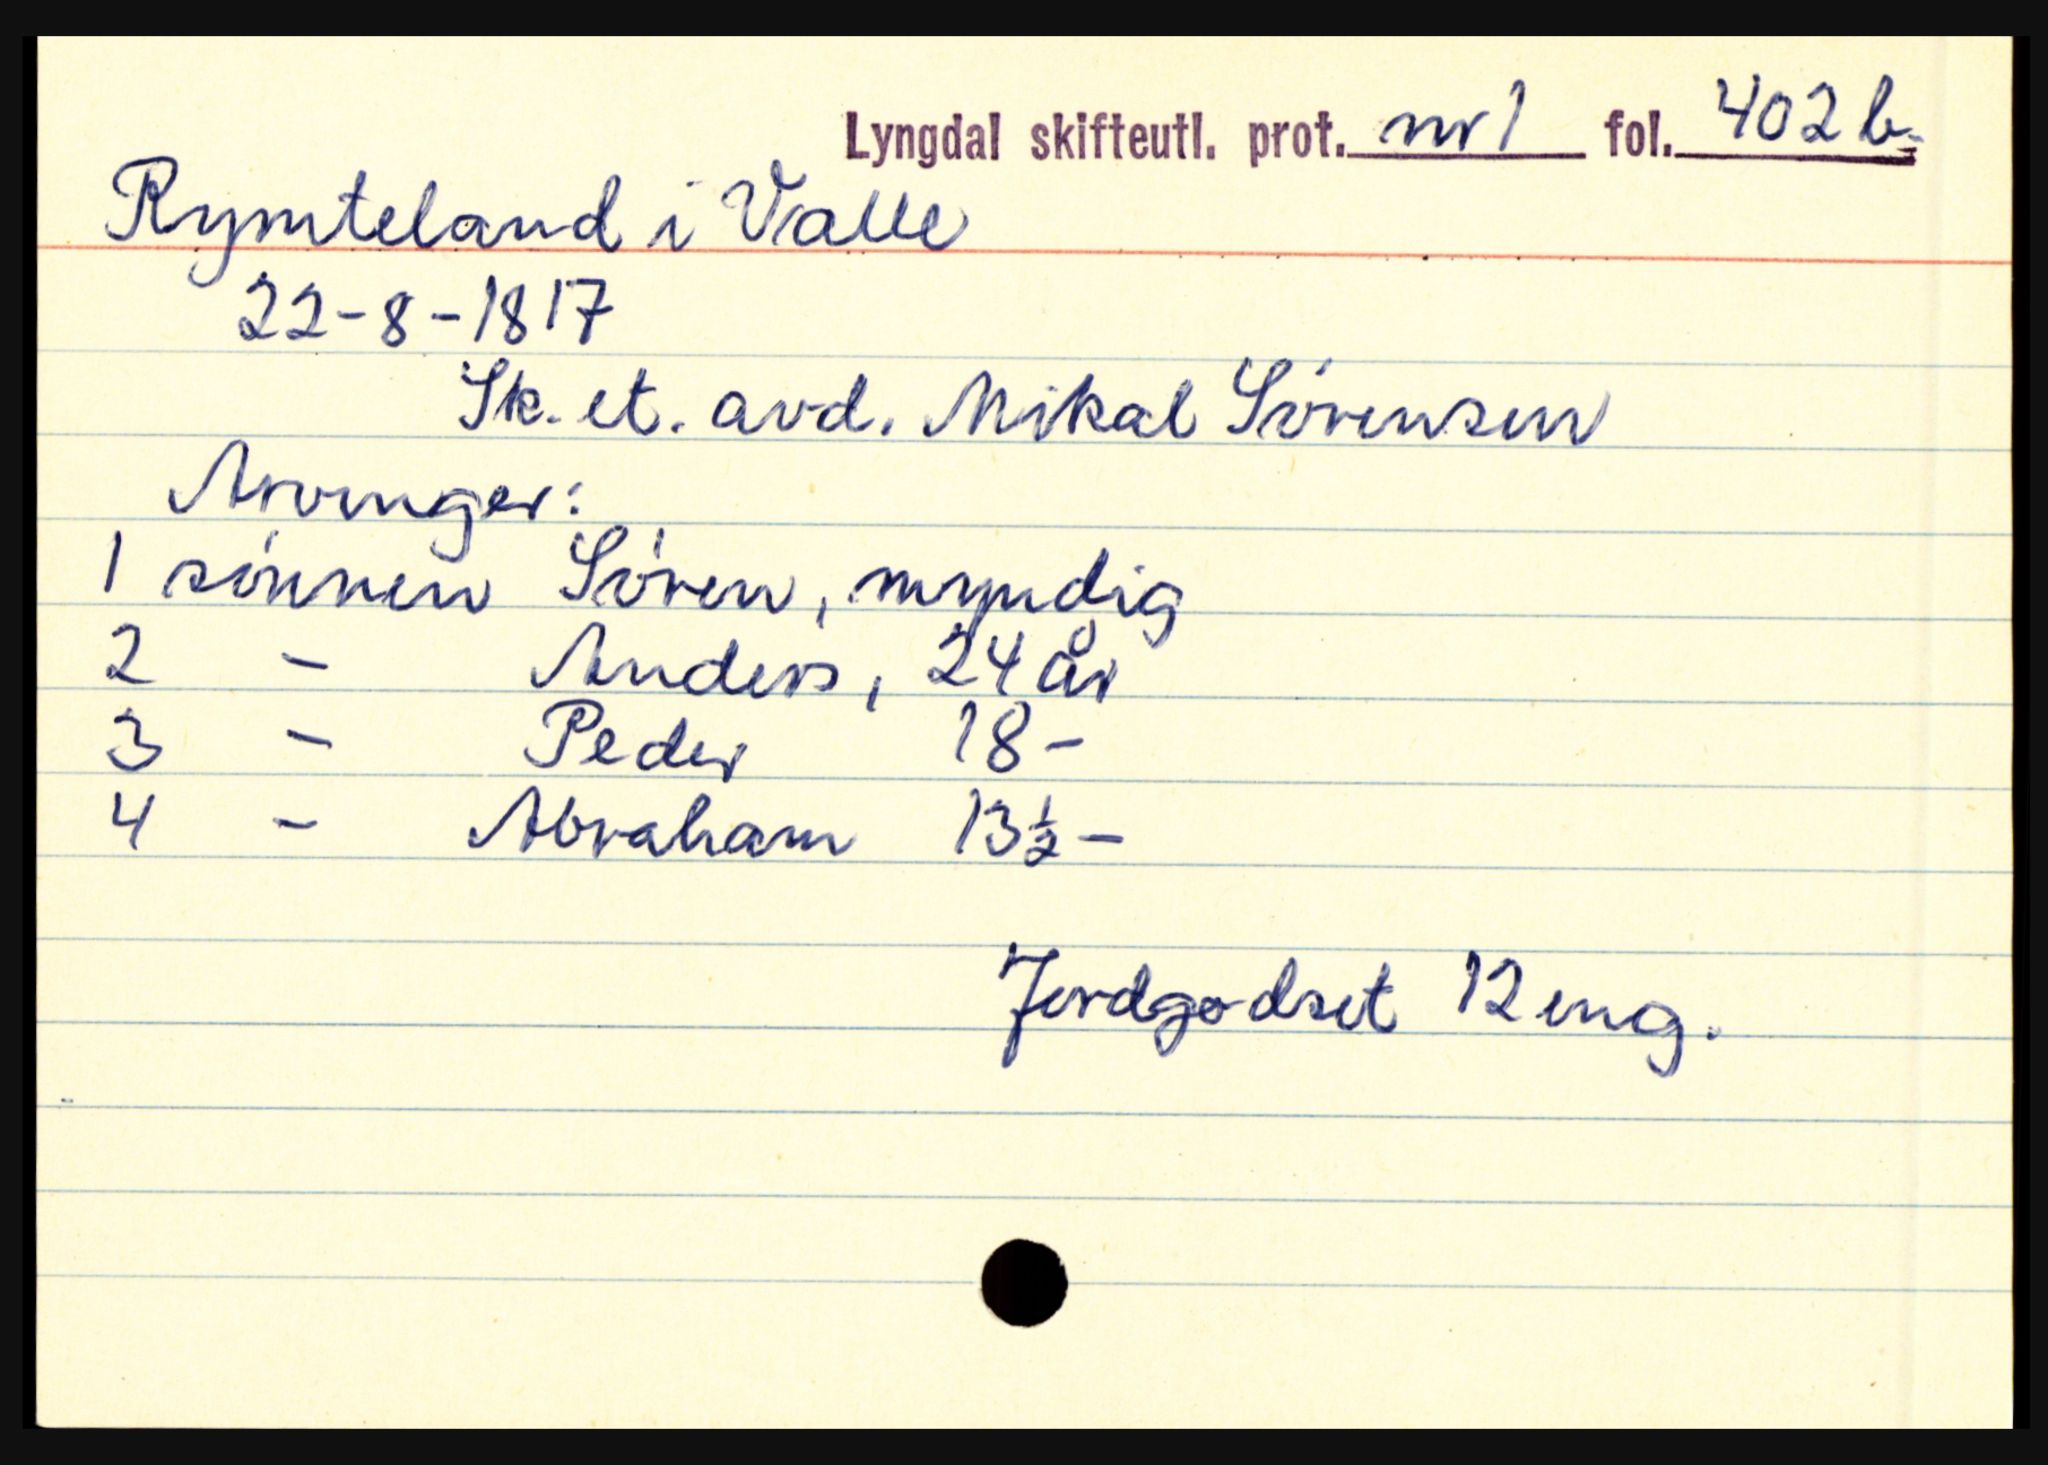 Lyngdal skifteutl. prot. nr 1 fol. 402 b.
Rymteland i Valle
22-8-1817
Sk. et. avd. Mikal Sörensen
Arvinger:
1 sönnen Sören, myndig
2 - Anders, 24 år
3 - Peder 18 -
4 - Abraham 13½ -
Jordgodset 12 eng.